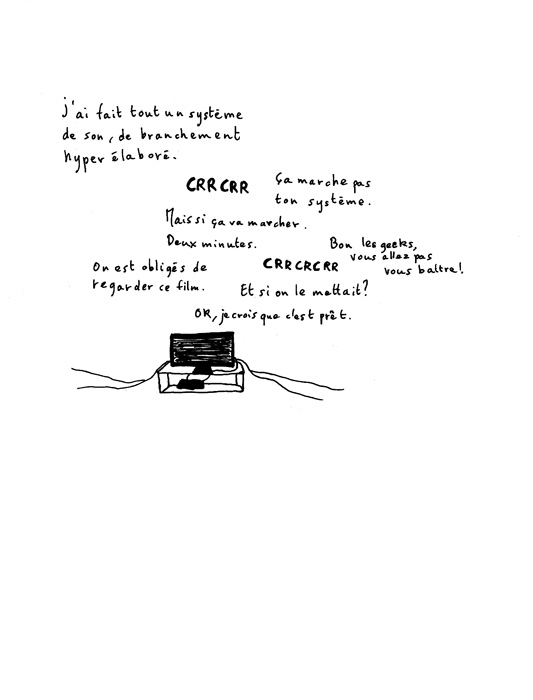 j'ai fait tout un système
de son, de branchement
hyper élaboré.
CRRCRR
Ça marche pas
ton système.
Mais si ça va marcher.
Deux minutes.
Bon les geeks,
vous allez pas
vous battre!
CRRCRCRR
On est obligés de
regarder ce film.
Et si on le mettait?
OK, je crois que c'est prêt.